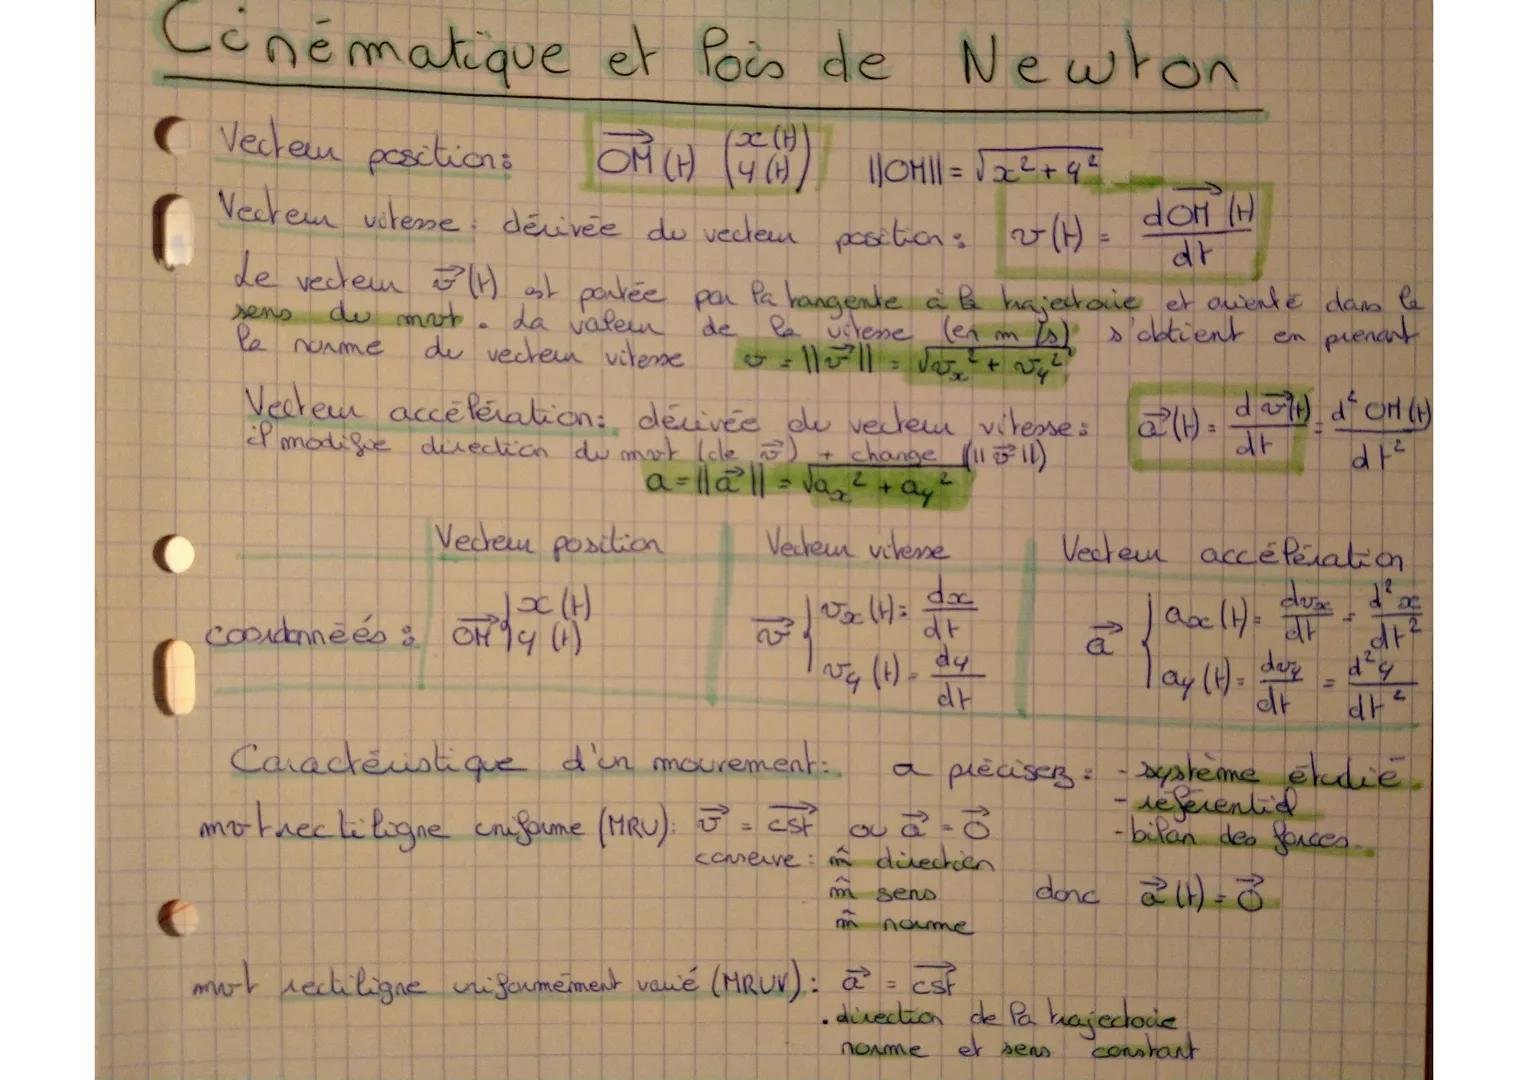 Cinématique et lois de Newton
Vecteur position: OM⃗(t) (x(t) y(t)) ||OM|| = √x² + y²
Vecteur vitesse : dérivée du vecteur position: v(t) = dOM⃗(t)/dt
Le vecteur v⃗(t) est portée par la tangente à la trajectoire et orienté dans le
sens du mvt. La valeur de la vitesse (en m/s) s'obtient en prenant
la norme du vecteur vitesse v = ||v⃗|| = √vx² + vy²
Vecteur accélération: dérivée du vecteur vitesse: a⃗(t) = dv⃗(t)/dt = d² OM(t)/dt²
il modifie direction du mvt (de v⃗) + change (||v⃗||)
a = ||a⃗|| = √ax² + ay²
Vecteur position Vecteur vitesse Vecteur accélération
coordonnéés : OM⃗ { x(t) y(t) v⃗ { vx(t) = dx/dt vy(t) = dy/dt a⃗ { ax(t) = dvx/dt = d²x/dt² ay(t) = dvy/dt = d²y/dt²
Caractéristique d'un mouvement: a précisez : - système étudié
- référentiel
mvt rectiligne uniforme (MRU): v⃗ = cst⃗ ou a⃗ = 0⃗ - bilan des forces.
conserve : m̂ direction
m̂ sens donc a⃗(t) = 0⃗
m̂ norme
mvt rectiligne uniformément varié (MRUV) : a⃗ = cst⃗
. direction de la trajectoie
norme et sens constant